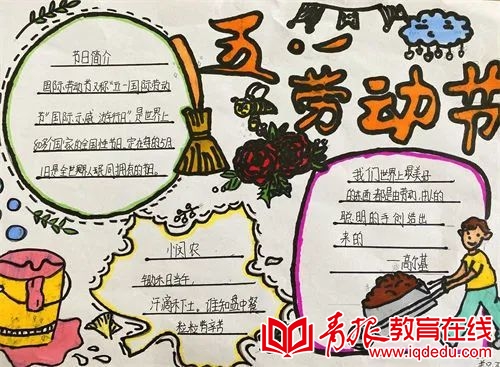 五·一
劳动节
节日简介
国际劳动节又称“五一国际劳动
节”“国际示威游行日”是世界上
80多个国家的全国性节日,定在每年的5月
1日是全世界人民共同拥有的节日。
小悯农
锄禾日当午,
汗滴禾下土,谁知盘中餐
粒粒皆辛苦
我们世界上最美好
的东西都是由劳动、由人的
聪明的手创造出
来的
——高尔基
青报教育在线
www.iqdedu.com